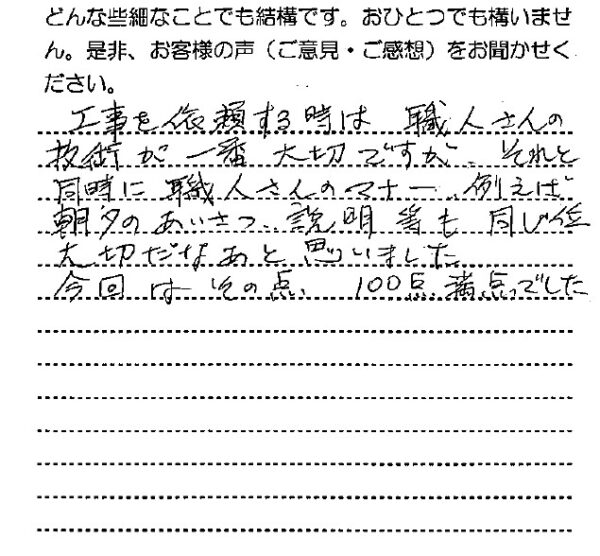 どんな些細なことでも結構です。おひとつでも構いませ
ん。是非、お客様の声（ご意見・ご感想）をお聞かせく
ださい。
工事を依頼する時は 職人さんの
技術が 一番 大切ですが、それと
同時に 職人さんのマナー、例えば
朝夕のあいさつ、説明等も 同じ位
大切だなあと 思いました
今回は その点、 100点満点でした